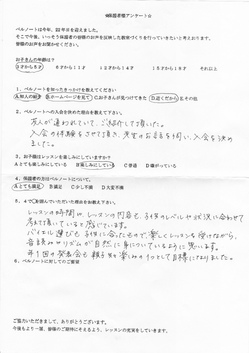 ☆保護者様アンケート☆
ベルノートは今年、22年目を迎えました。
そこで今後、いっそう保護者の皆様のお声を反映した教室づくりを行っていきたいと考えております。
皆様のお声をお聞かせください。
お子さんの年齢は？
3才から5才 6才から11才 12才から14才 15才から18才 それ以上
1、ベルノートを知ったきっかけを教えてください
A知人の紹介 Bホームページを見て Cちらしがきっかけで D近くだから Eその他
2、ベルノートへの入会を決めた理由をお教えください。
友人が通われていて、ご紹介して頂いた。
入会の体験をさせて頂き、先生のお話を伺い、入会を決め
ました。
3、お子様はレッスンを楽しみにしていますか？
Aとても楽しみにしている B楽しみにしている C普通 D嫌がっている
4、保護者の方はベルノートについて。
Aとても満足 B満足 C少し不満 D大変不満
レッスンの時間や、レッスンの内容も、子供のレベルや状況に合わせて
考えて頂いていると感じています。
バイエル選びも子供に合ったもので、楽しくレッスンを受けながら、
音読みやリズムが自然に身についているように思います。
年1回の発表会も親子共々楽しみの1つとして目標になりました。
6、ベルノートに対してのご要望
ご協力いただきまして、ありがとうございます。
今後もより一層、皆様のご期待にそえるよう、レッスンの充実をしていきます。